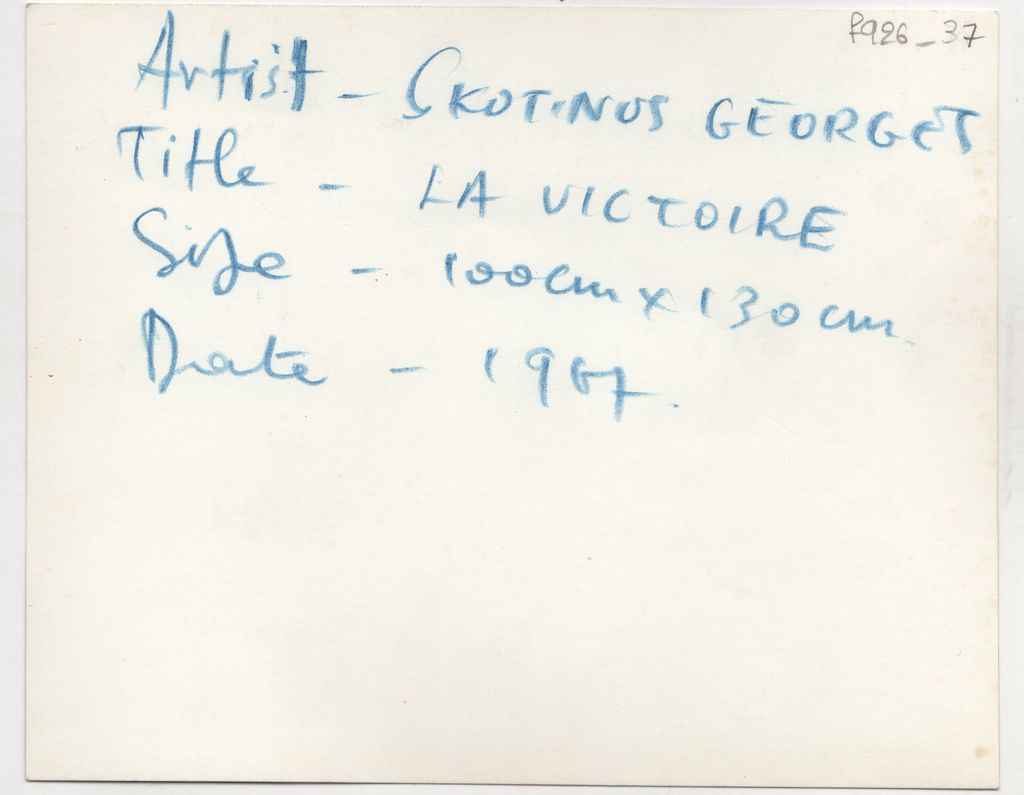 P926_37
Artist - SKOTINOS GEORGES
Title - LA VICTOIRE
Size - 100cm x 130cm.
Date - 1967.